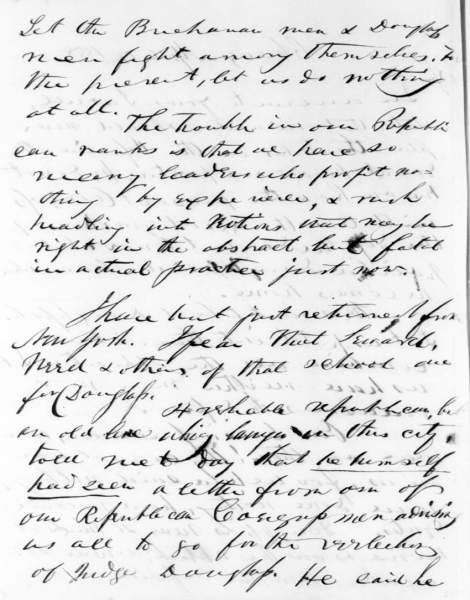 Let the Buchanan men & Douglass
men fight among themselves. For
the present, let us do nothing
at all.
The trouble in our Republi
can ranks is that we have so
many leaders who profit no-
thing by experience, & rush
headling into Notions that may be
right in the abstract but fatal
in actual practice just now.
I have but just returned from
New York. I fear that Seward,
Weed & others of that school are
for Douglass.
A reliable republican, but
an old line whig lawyer in this city
told me to day that he himself
had seen a letter from one of
our Republican Congressmen advising
us all to go for the reelection
of Judge Douglass. He said he